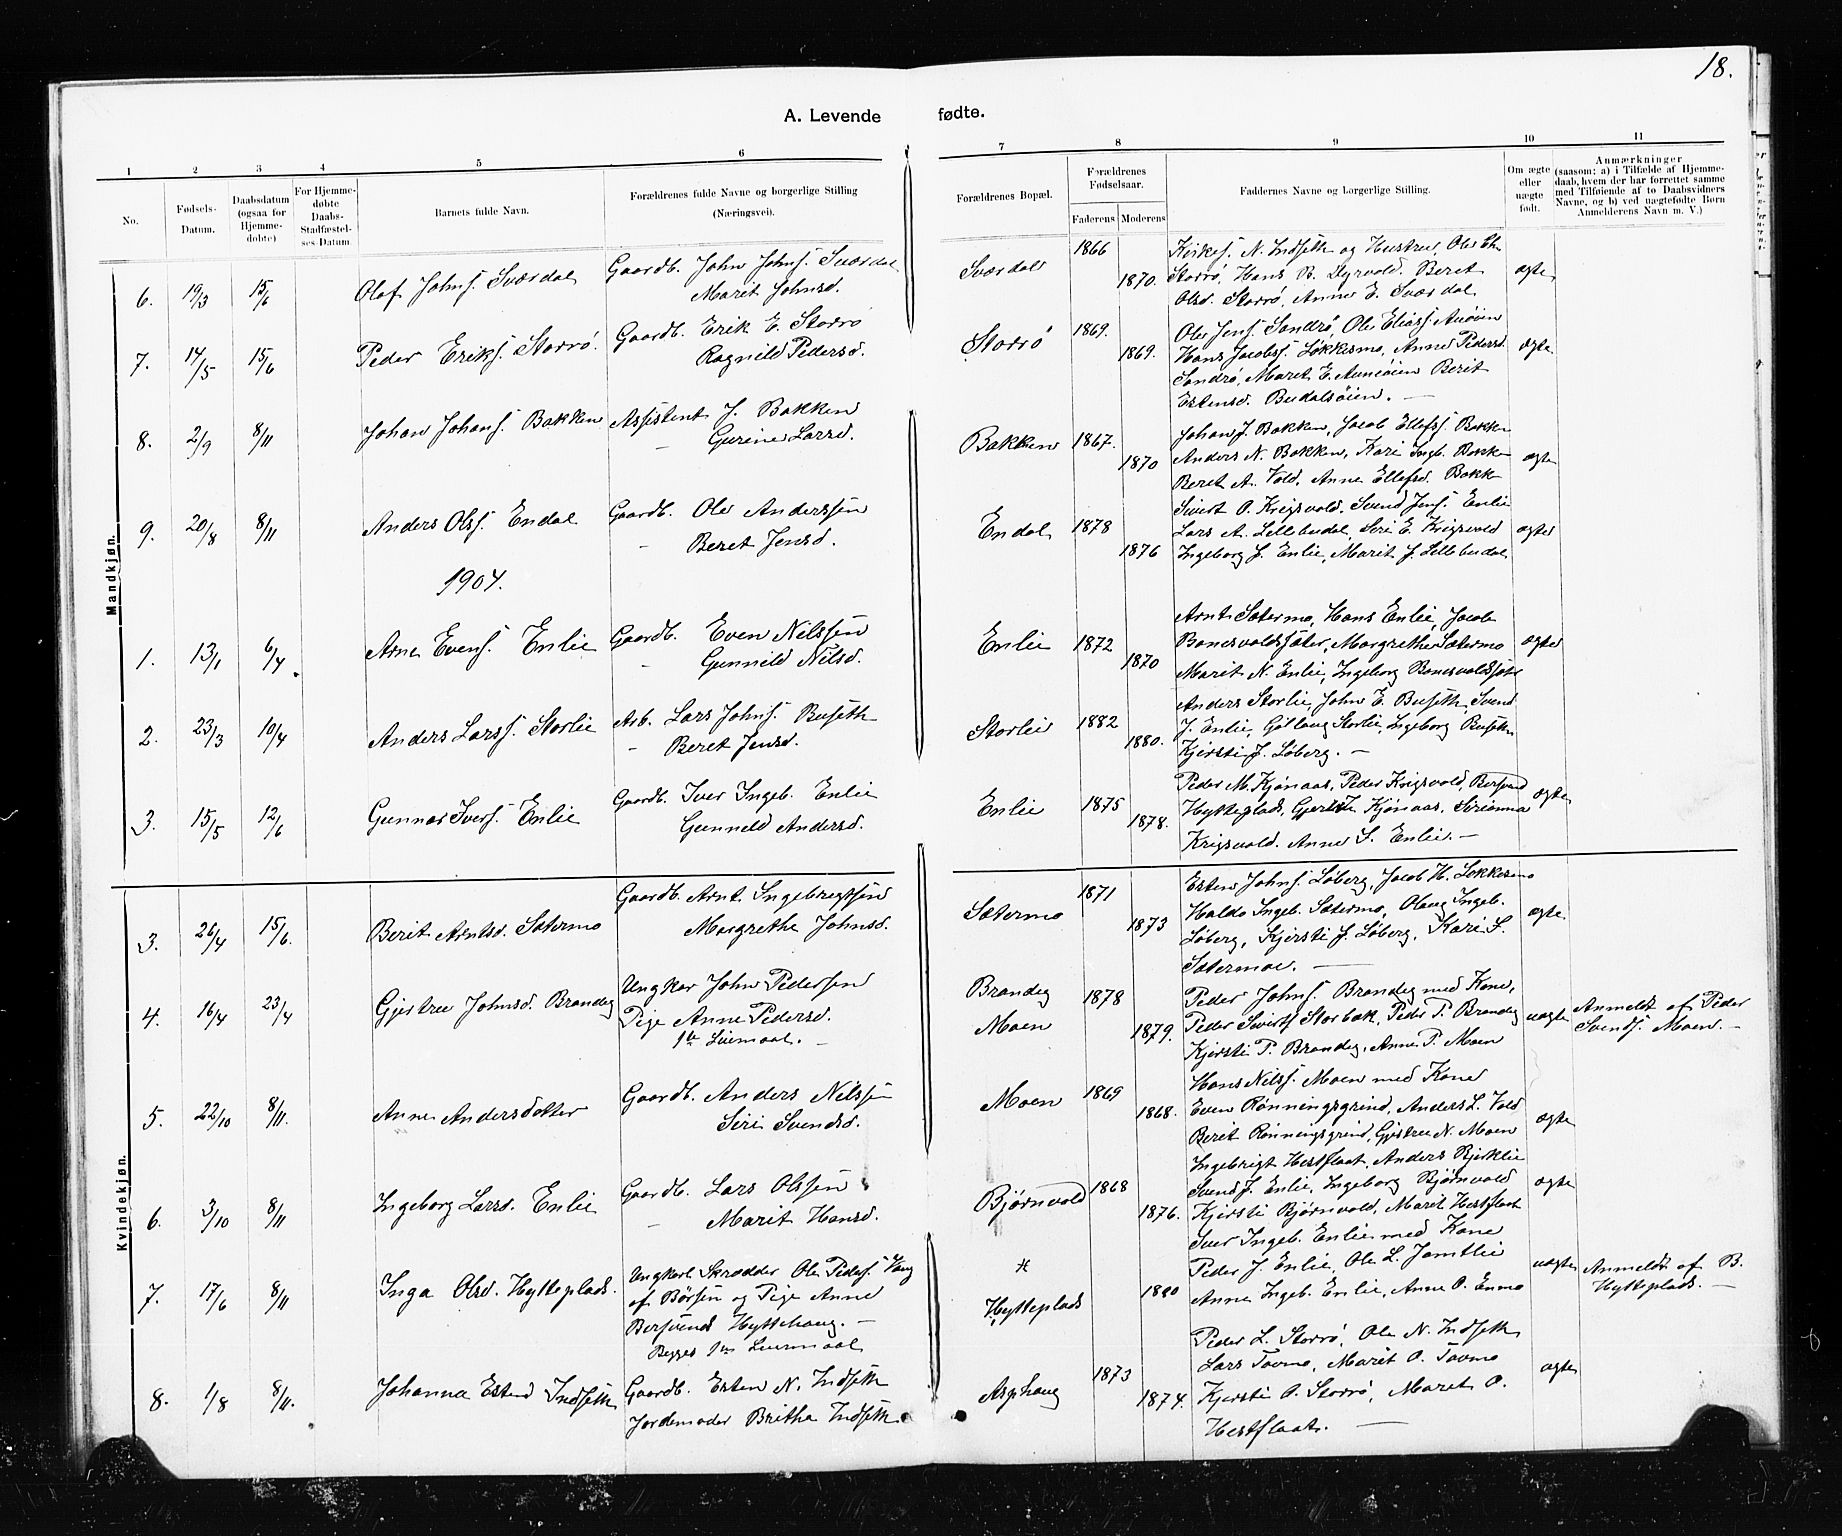 18.
A. Levende fødte.
1 2 3 4 5 6 7 8 9 10 11
No.
Fødsels-
Datum.
Daabsdatum
(ogsaa for
Hjemme-
døbte)
For Hjemme-
døbte
Daabs-
Stadfæstel-
ses-Datum
Barnets fulde Navn.
Forældrenes fulde Navne og borgerlige Stilling
(Næringsvei).
Forældrenes Bopæl.
Forældrenes
Fødselsaar.
Faderens Moderens
Faddernes Navne og borgerlige Stilling.
Om ægte
eller
uægte
født.
Anmærkninger
(saasom: a) i Tilfælde af Hjemme-
daab, hvem der har forrettet samme
med Tilføiende af to Daabsvidners
Navne, og b) ved uægtefødte Børn
Anmelderens Navn m. V.)
Mandkjøn.
6. 19/3 15/6 Olaf Johns. Sværdal Gaardb. John Johns. Sværdal
Marit Johnsd.
Sværdal 1866 1870. ægte
Kirkes. N. Indseth og Hustru, Ole Eh.
Storrø, Hans R. Dyrvold. Beret
Olsd. Storrø, Anne E. Sværdal
7. 14/5 15/6 Peder Eriks. Storrø. Gaardb. Erik E. Storrø
Ragnild Pedersd.
Storrø 1869. 1869. ægte
Ole Jens. Sandrø, Ole Eliass. Aunøien
Hans Jacobss. Løkkesmo, Anne Pedersd.
Sandrø, Maret E. Aunøien Berit
Estensd. Budalsøien. —
8. 2/9 8/11 Johan Johans. Bakken Assistent J. Bakken
— Gurine Larsd.
Bakken 1867. 1870 ægte
Johan J. Bakken, Jacob Ellefss. Bakke
Anders N. Bakken, Kari Ingb. Bakke
Beret A. Vold, Anne Ellefsd. Bakk
9. 20/8 8/11 Anders Olss. Endal Gaardb. Ole Anderssen
— Beret Jensd.
Endal 1878 1876 ægte
Sivert O. Krigsvold. Svend Jens. Enlie
Lars A. Lillebudal, Siri E. Krigsvold
Ingeborg J. Enlie, Marit J. Lillebudal
1904.
1. 13/1 6/4 Arne Evens. Enlie Gaardb. Even Nilssen
— Gunnild Nilsd.
Enlie 1872 1870 ægte
Arnt Sætermo, Hans Enlie, Jacob
Bonesvoldsæter, Margrethe Sætermo
Marit N. Enlie, Ingeborg Bonesvoldsæte
2. 23/3 10/4 Anders Larss. Storlie Arb. Lars Johns. Buseth
— Beret Jensd.
Storlie 1882 1880.
Anders Storlie, John E. Buseth, Svend
J. Enlie, Gøllaug Storlie, Ingeborg Buseth
Kjersti J. Løberg. —
3. 15/5 12/6 Gunnar Ivers. Enlie Gaardb. Iver Ingeb. Enlie
Gunnild Andersd.
Enlie 1875 1878. ægte
Peder M. Kjønaas, Peder Krigsvold, Bersvend
Hytteplads, Gjertrue Kjønaas, Sirianna
Krigsvold. Anne S. Enlie. —
Kvindekjøn.
3. 26/4 15/6. Berit Arntsd. Sætermo Gaardb. Arnt Ingebregtsen
Margrethe Johnsd.
Sætermo 1871 1873 ægte
Esten Johns. Løberg, Jacob H. Løkkesmo
Haldo Ingeb. Sætermo, Olaug Ingeb.
Løberg, Kjersti J. Løberg, Kari S.
Sætermoe. —
4. 16/4 23/4 Gjertrue Johnsd. Brandeg Ungkar John Pedersen
Pige Anne Pedersd.
1te Leiermaal. —
Brandeg 1878
Moen 1879. uægte
Peder Johns. Brandeg med Kone,
Peder Siverts Storbæk, Peder P. Brandeg
Kjersti P. Brandeg, Anne P. Moen
Anmeldt af Peder
Svends. Moen. —
5. 22/10 8/11. Anne Andersdatter Gaardb. Anders Nilssen
Siri Svendsd.
Moen 1869 1868. ægte
Hans Nilss. Moen med Kone
Even Rønningsgrind, Anders L. Vold
Berit Rønningsgrind, Gjertrue N. Moen
6. 3/10 8/11 Ingeborg Larsd. Enlie Gaardb. Lars Olssen
— Marit Hansd.
Bjørnvold 1868 1876. ægte
Ingebrigt Hestflaat, Anders Bjerklie
Svend J. Enlie, Ingeborg Bjørnvold
Kjersti Bjørnvold, Maret Hestflaat
7. 17/6 8/11 Inga Olsd. Hytteplads. Ungkarl Skrædder Ole Peders. Haug
af Børsen og Pige Anne
Bersvends Hyttehaug. —
Begges 1te Leiermaal
Hytteplads 1880 uægte
Iver Ingeb. Enlie med Kone
Peder J. Enlie, Ole L. Jamtlie
Anne Ingeb. Enlie, Anne O. Enmo
Anmeldt af B.
Hytteplads. —
8. 1/8 8/11. Johanna Estend Indseth Gaardb. Esten N. Indseth
Jordemoder Britha Indseth
Asphaug 1873 1874. ægte
Peder L. Storrø, Ole N. Indseth
Lars Tovmo, Marit O. Tovmo
Kjersti O. Storrø, Maret O.
Hestflaat. —